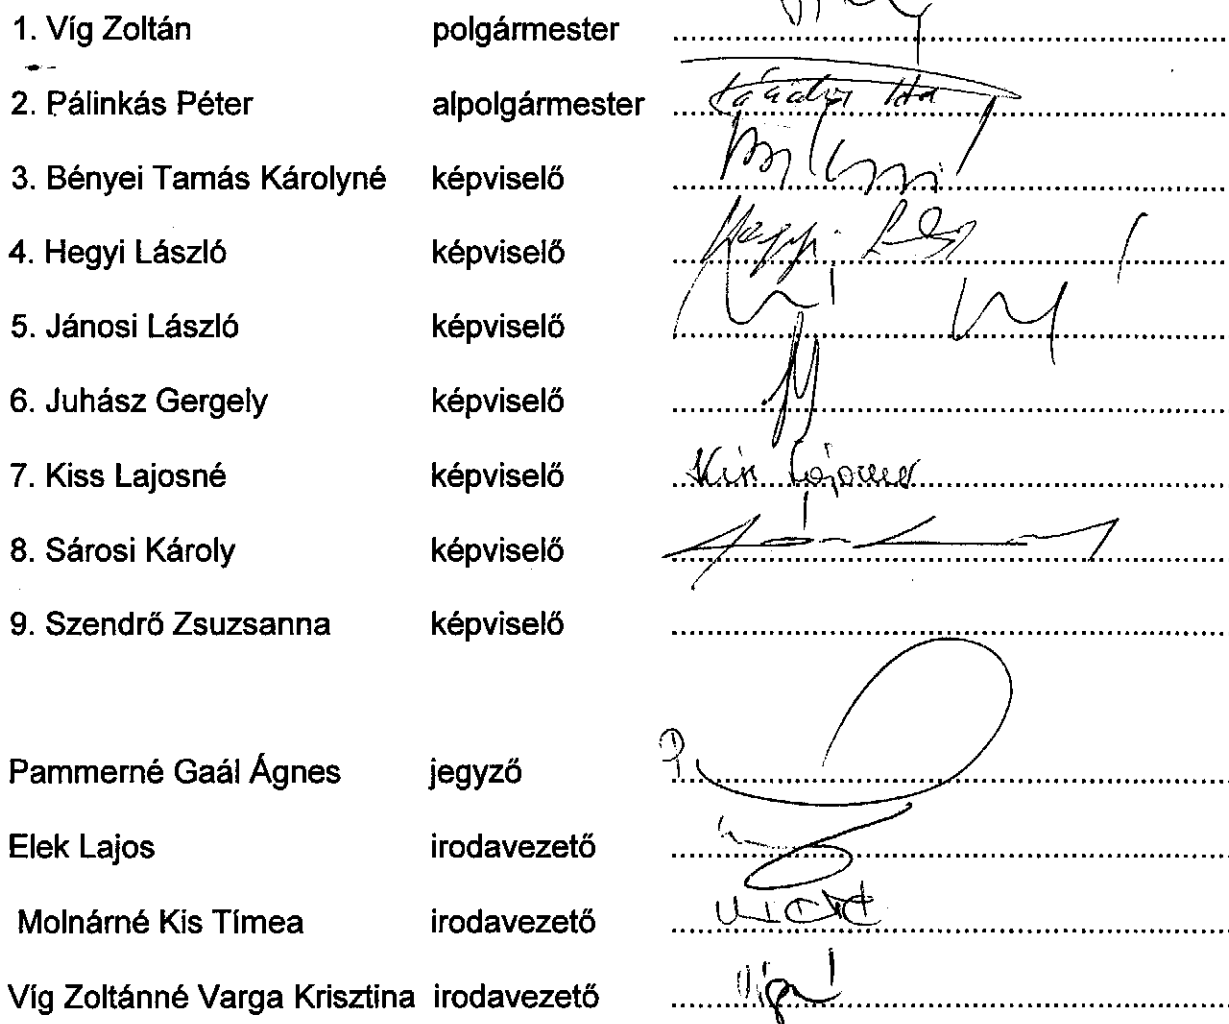 1. Víg Zoltán polgármester
2. Pálinkás Péter alpolgármester
3. Bényei Tamás Károlyné képviselő
4. Hegyi László képviselő
5. Jánosi László képviselő
6. Juhász Gergely képviselő
7. Kiss Lajosné képviselő Kiss Lajosné
8. Sárosi Károly képviselő
9. Szendrő Zsuzsanna képviselő
Pammerné Gaál Ágnes jegyző
Elek Lajos irodavezető
Molnárné Kis Tímea irodavezető
Víg Zoltánné Varga Krisztina irodavezető